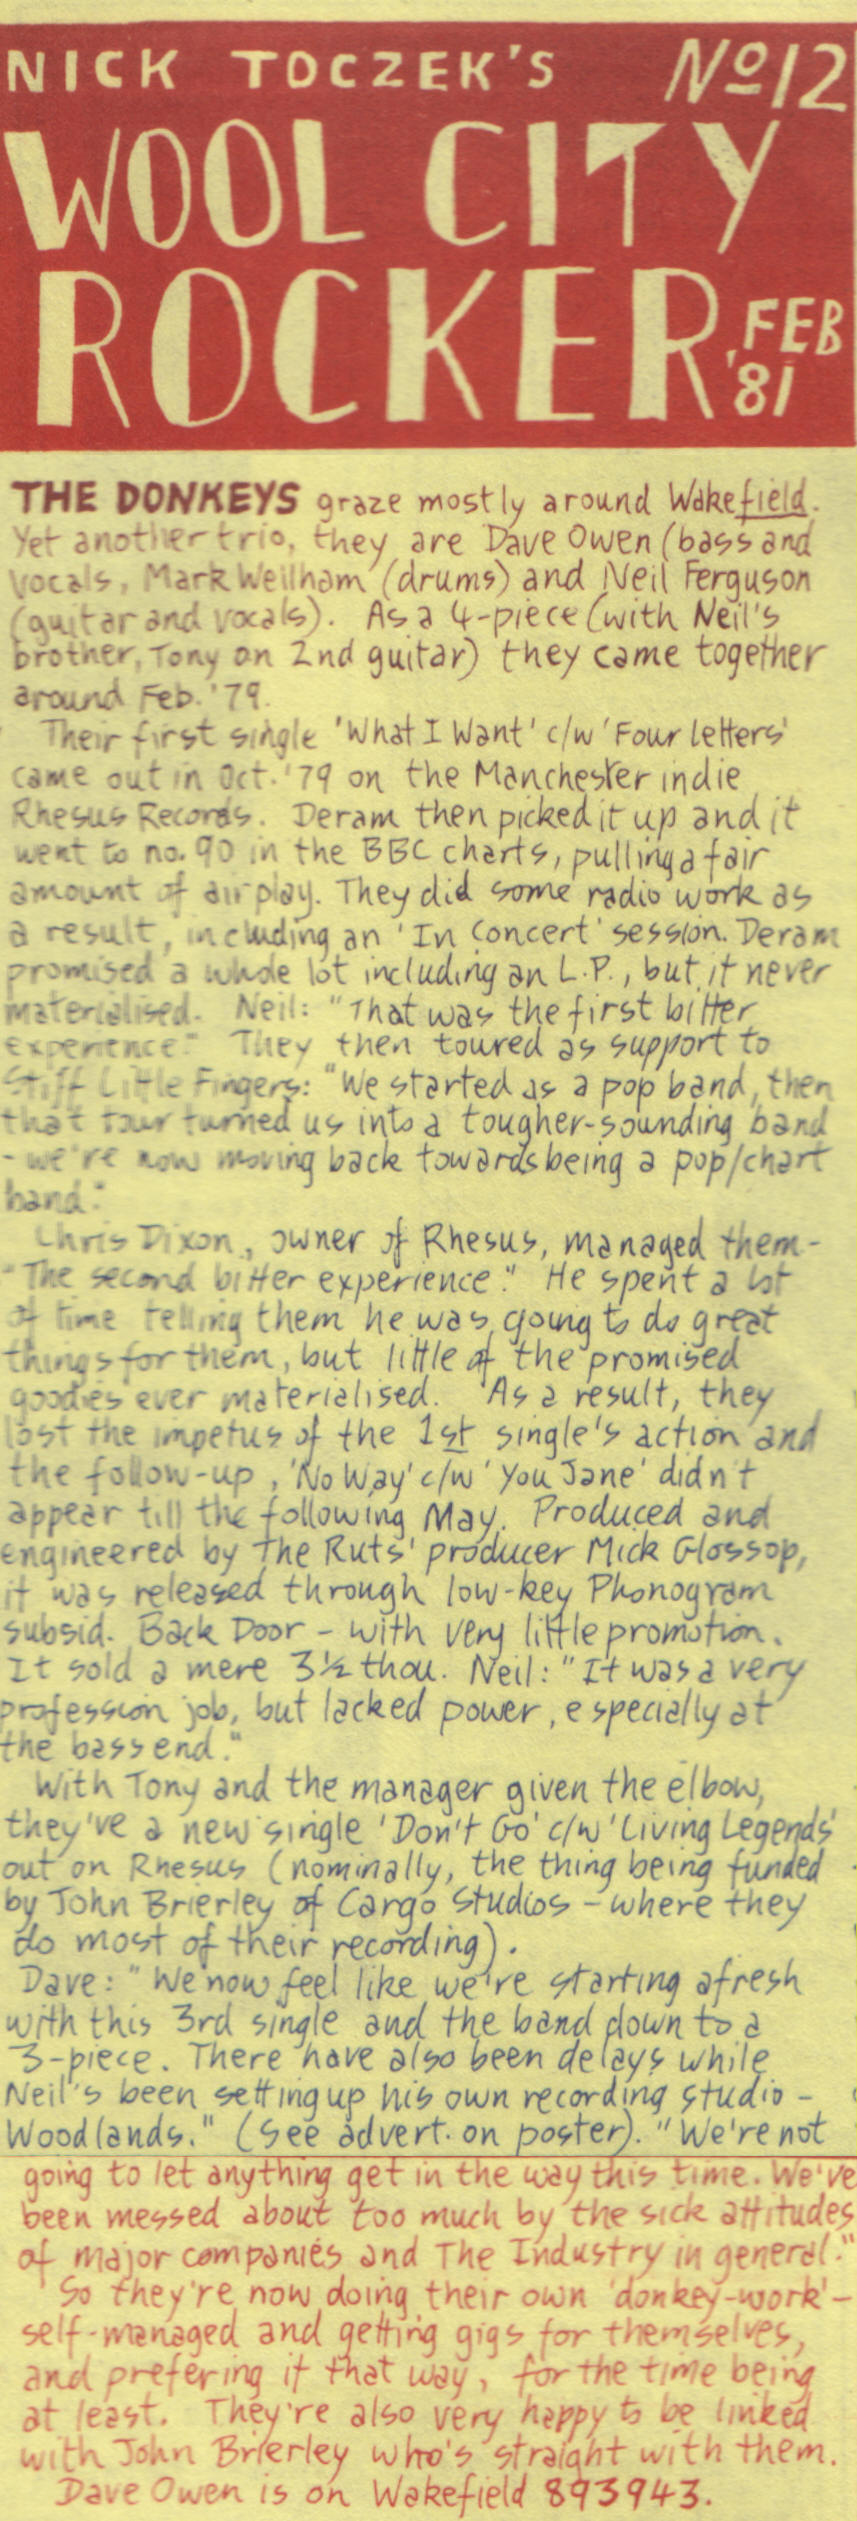 NICK TOCZEK'S Nº12
WOOL CITY
ROCKER FEB
'81
THE DONKEYS graze mostly around Wakefield.
Yet another trio, they are Dave Owen (bass and
vocals, Mark Weilham (drums) and Neil Ferguson
(guitar and vocals). As a 4-piece (with Neil's
brother, Tony on 2nd guitar) they came together
around Feb. '79.
Their first single 'What I Want' c/w 'Four letters'
came out in Oct. '79 on the Manchester indie
Rhesus Records. Deram then picked it up and it
went to no. 90 in the BBC charts, pulling a fair
amount of airplay. They did some radio work as
a result, including an 'In Concert' session. Deram
promised a whole lot including an L.P., but it never
materialised. Neil: "That was the first bitter
experience." They then toured as support to
Stiff Little Fingers: "We started as a pop band, then
that tour turned us into a tougher-sounding band
- we're now moving back towards being a pop/chart
band."
Chris Dixon, owner of Rhesus, managed them -
"The second bitter experience." He spent a lot
of time telling them he was going to do great
things for them, but little of the promised
goodies ever materialised. As a result, they
lost the impetus of the 1st single's action and
the follow-up, 'No Way' c/w 'You Jane' didn't
appear till the following May. Produced and
engineered by The Ruts' producer Mick Glossop,
it was released through low-key Phonogram
subsid. Back Door - with very little promotion.
It sold a mere 3½ thou. Neil: "It was a very
profession job, but lacked power, especially at
the bass end."
With Tony and the manager given the elbow,
they've a new single 'Don't Go' c/w 'Living Legends'
out on Rhesus (nominally, the thing being funded
by John Brierley of Cargo Studios - where they
do most of their recording).
Dave: "We now feel like we're starting afresh
with this 3rd single and the band down to a
3-piece. There have also been delays while
Neil's been setting up his own recording studio -
Woodlands." (See advert. on poster). "We're not
going to let anything get in the way this time. We've
been messed about too much by the sick attitudes
of major companies and The Industry in general."
So they're now doing their own 'donkey-work' -
self-managed and getting gigs for themselves,
and prefering it that way, for the time being
at least. They're also very happy to be linked
with John Brierley who's straight with them.
Dave Owen is on Wakefield 893943.